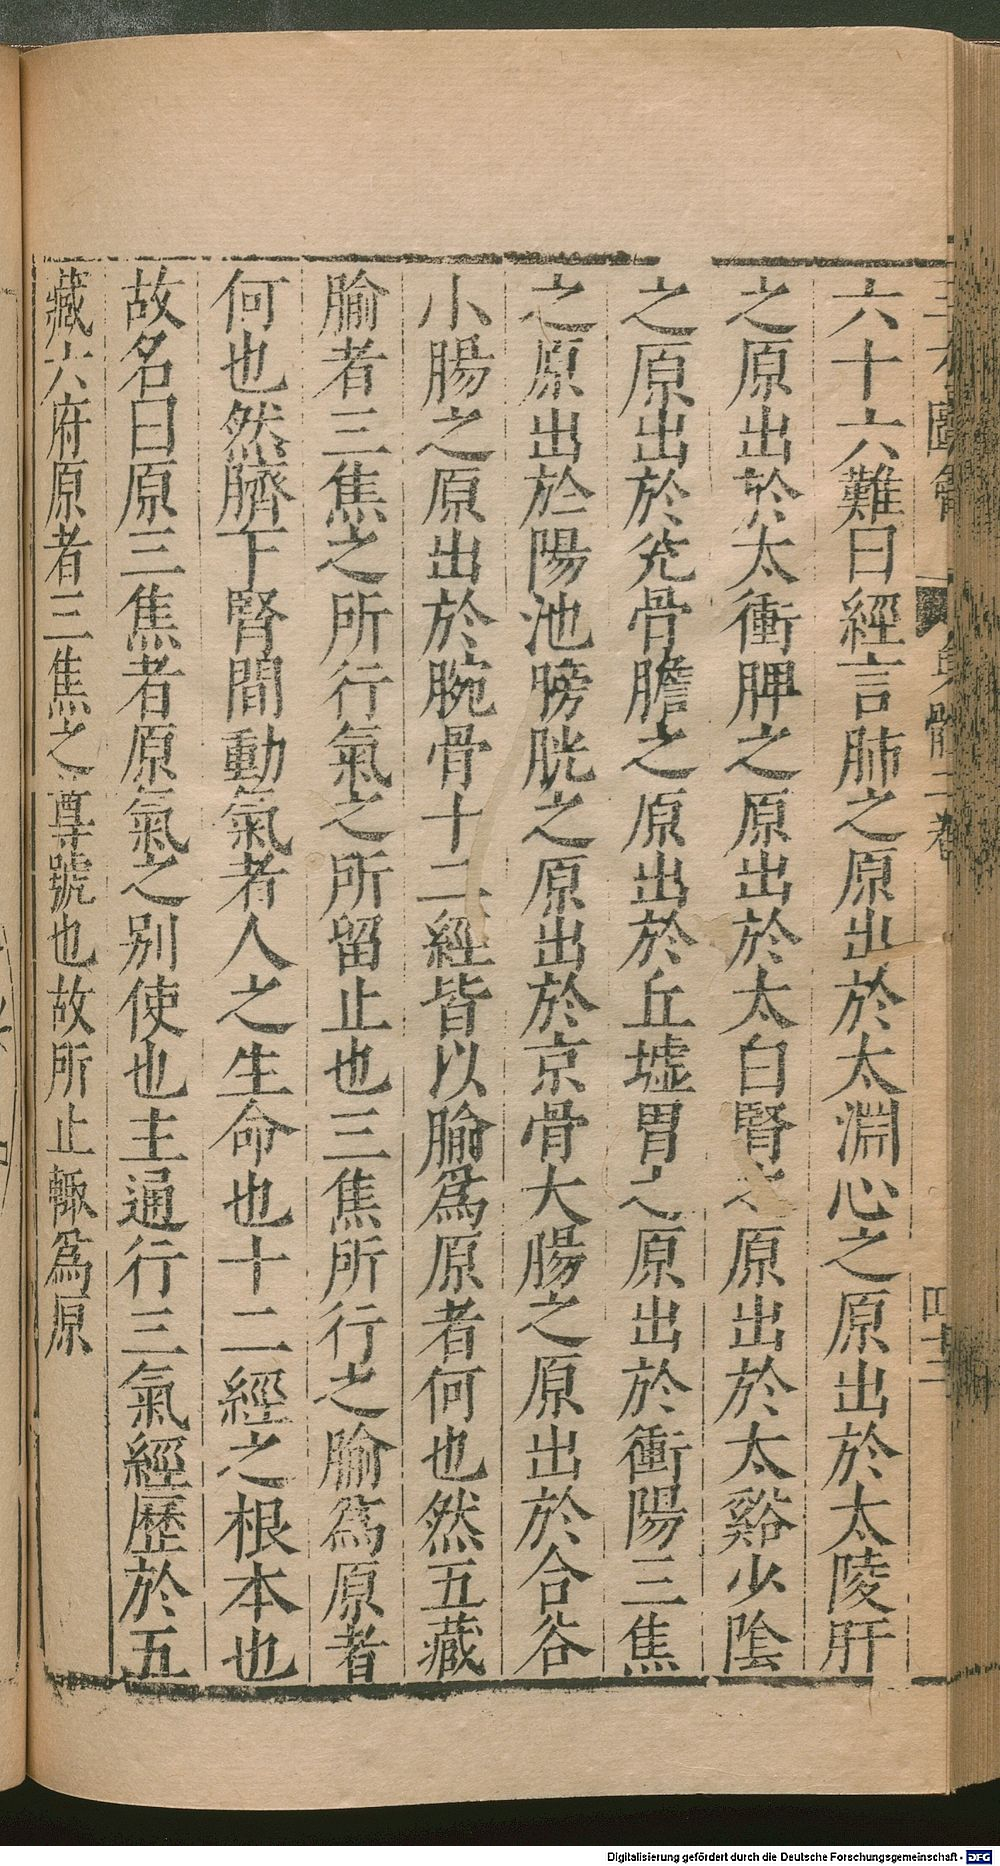 六十六難曰經言肺之原出於太淵心之原出於太陵肝
之原出於太衝脾之原出於太白腎之原出於太谿少陰
之原出於兊骨膽之原出於丘墟胃之原出於衝陽三焦
之原出於陽池膀胱之原出於京骨大腸之原出於合谷
小腸之原出於腕骨十二經皆以腧爲原者何也然五藏
腧者三焦之所行氣之所留止也三焦所行之腧爲原者
何也然臍下腎間動氣者人之生命也十二經之根本也
故名曰原三焦者原氣之別使也主通行三氣經歷於五
藏六府原者三焦之尊號也故所止輙爲原
Digitalisierung gefördert durch die Deutsche Forschungsgemeinschaft - DFG